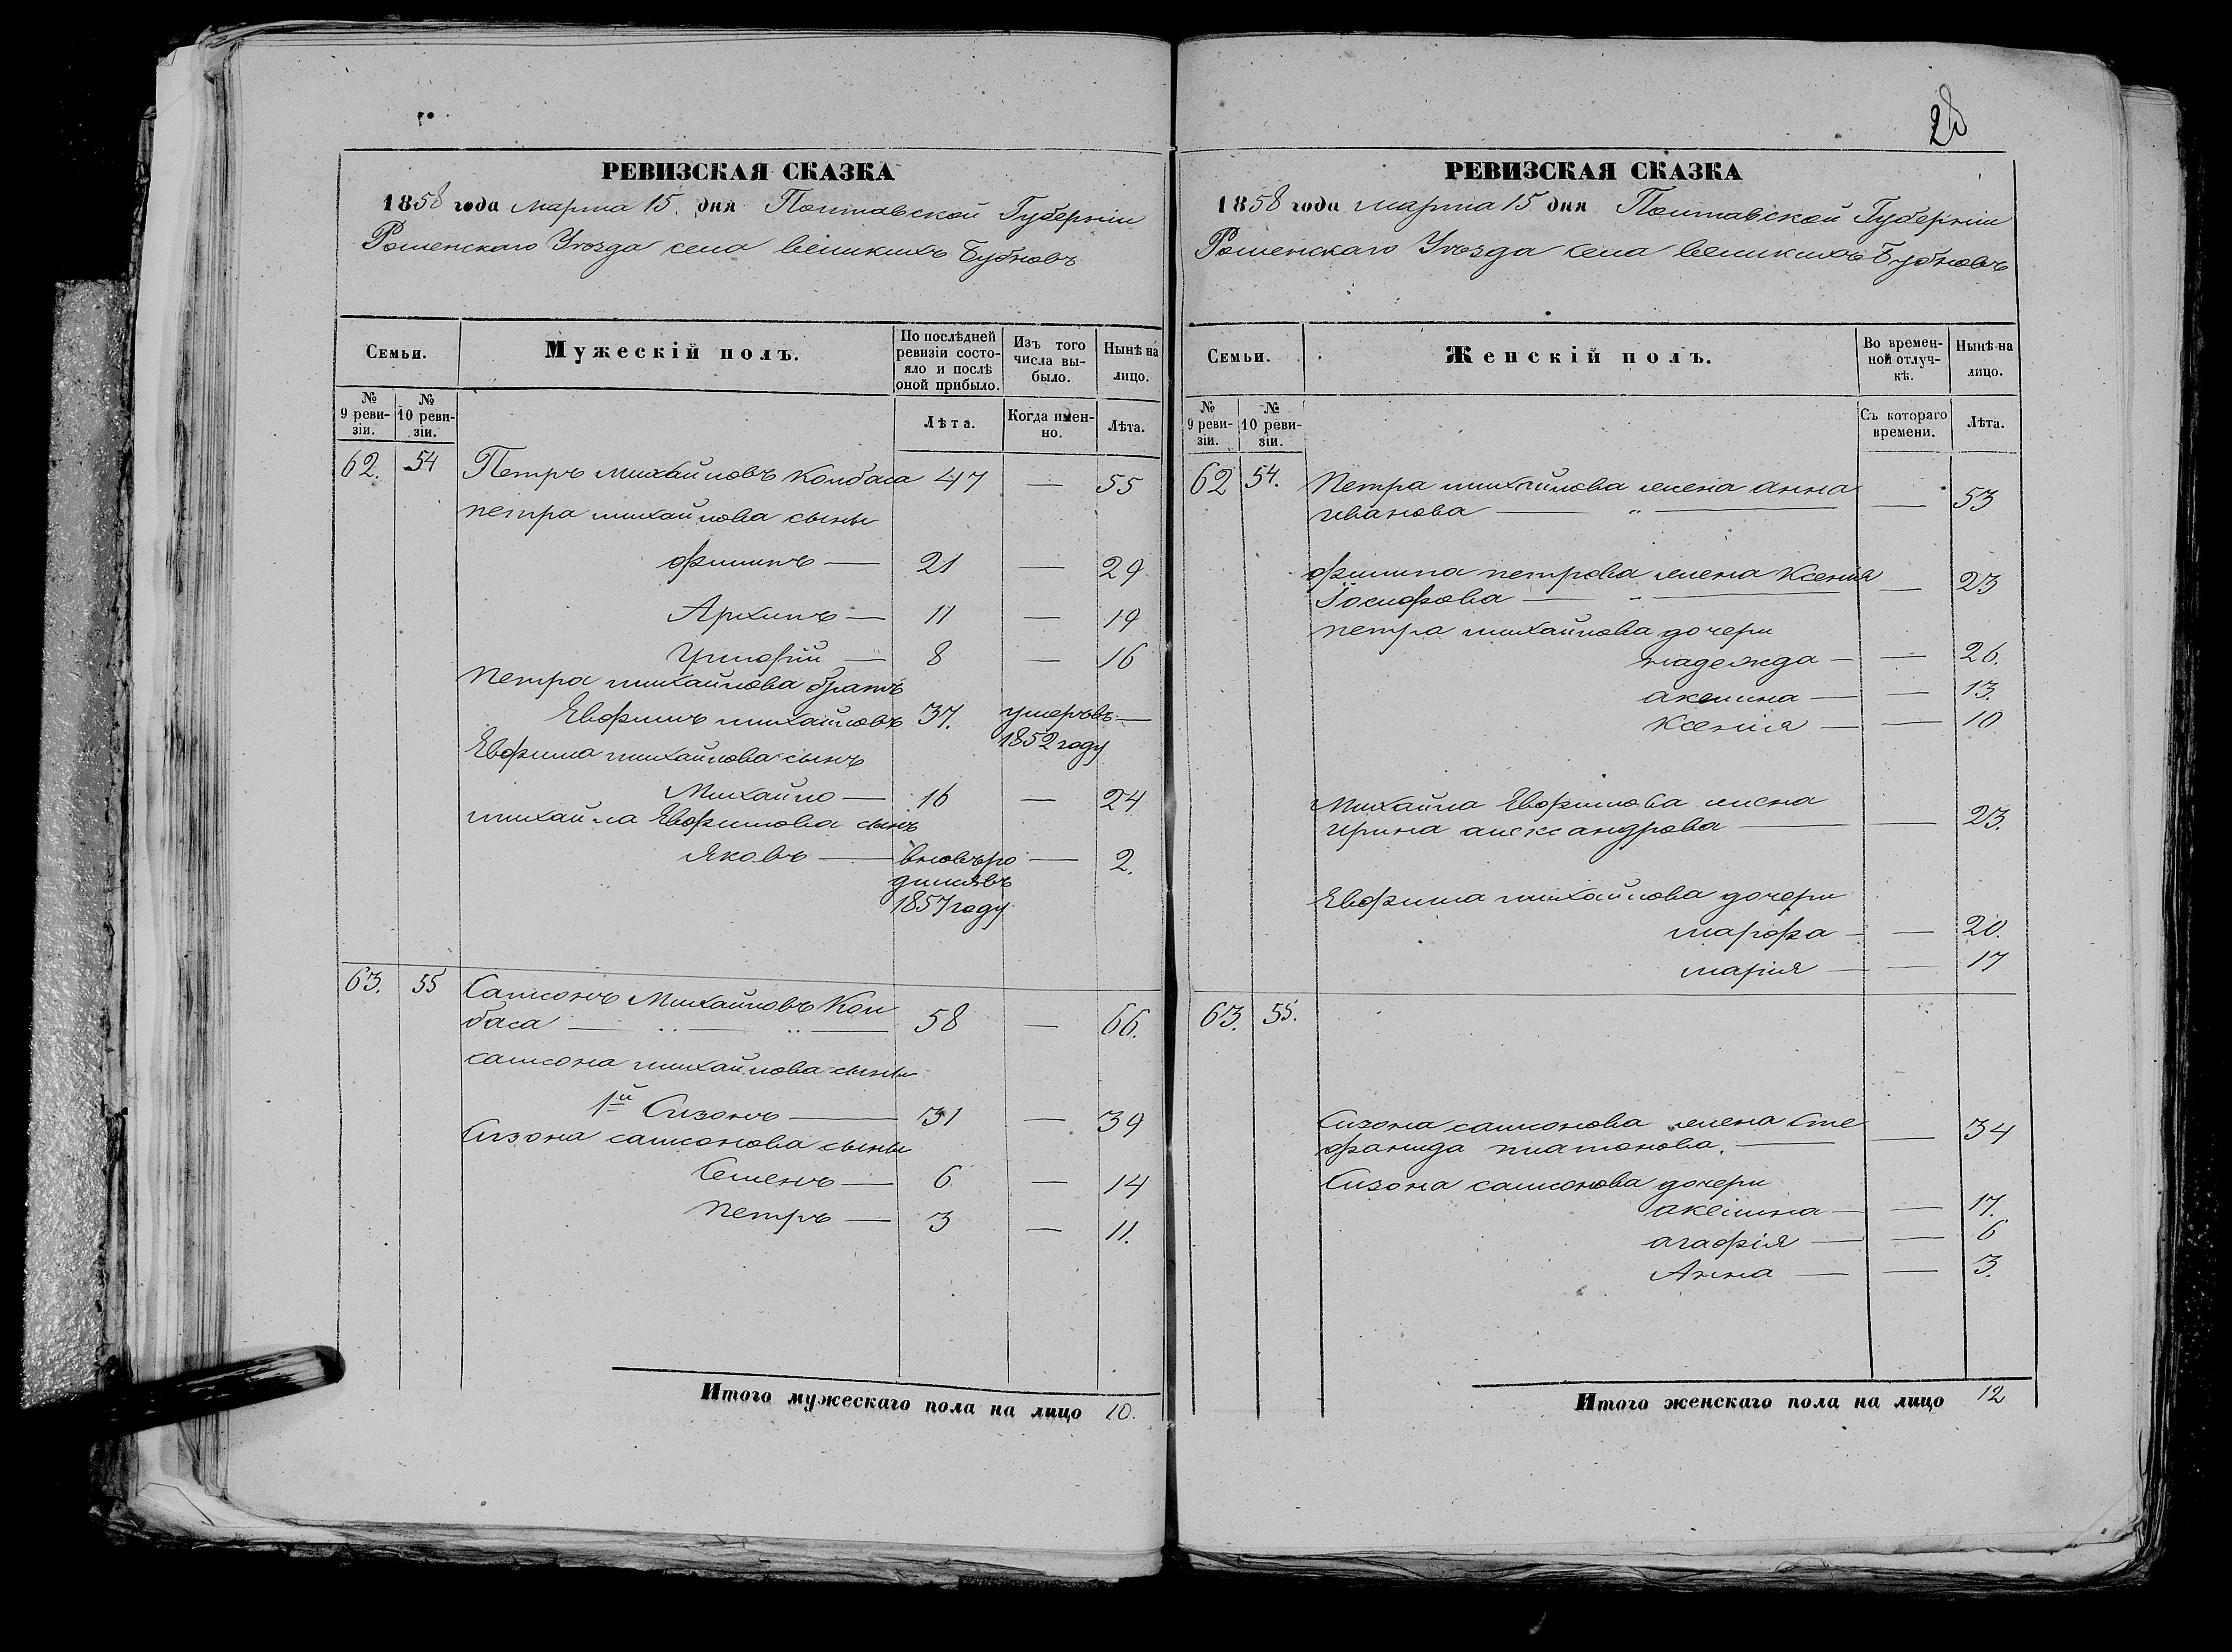 РЕВИЗСКАЯ СКАЗКА
1858 года марта 15. дня Полтавской Губерніи
Роменскаго Уѣзда села великихъ Бубновъ
Семьи.
Мужескій полъ.
По послѣдней ревизіи состояло и послѣ оной прибыло.
Изъ того числа выбыло.
Нынѣ на лицо.
№ 9 ревизіи.
№ 10 ревизіи.
Лѣта.
Когда именно.
Лѣта.
62. 54 Петръ михайловъ Колбаса 47 — 55
петра михайлова сыны
филипъ — 21 — 29
Архипъ — 11 — 19
— 8 — 16
петра михайлова братъ
Евфимъ михайловъ 37. умеръ въ —
1852 году
Евфима михайлова сынъ
Михайло — 16 — 24
михайла Евфимова сынъ
Яковъ — вновь ро — 2.
дился въ
1857 году
63. 55 Самсонъ Михайловъ Кол
баса — 58 — 66.
самсона михайлова сыны
1й Сизонъ — 31 — 39
Сизона самсонова сыны
Семенъ — 6 — 14
петръ — 3 — 11.
Итого мужескаго пола на лицо 10.
28
РЕВИЗСКАЯ СКАЗКА
1858 года марта 15 дня Полтавской Губерніи
Роменскаго Уѣзда села великихъ Бубновъ
Семьи.
Женскій полъ.
Во временной отлучкѣ.
Нынѣ на лицо.
№ 9 ревизіи.
№ 10 ревизіи.
Съ котораго времени.
Лѣта.
62 54. Петра михайлова жена анна
иванова — " — — 53
филипа петрова жена Ксенія
Іосифова — " — — 23
петра михайлова дочери
надежда — — 26.
акелина — — 13.
Ксенія — — 10
Михайла Евфимова жена
ирина александрова — — 23.
Евфима михайлова дочери
марфа — — 20.
марія — — 17
63. 55.
Сизона самсонова жена Сте
фанида платонова. — — 34
Сизона самсонова дочери
акелина — — 17.
агафія — — 6
Анна — — 3.
Итого женскаго пола на лицо 12